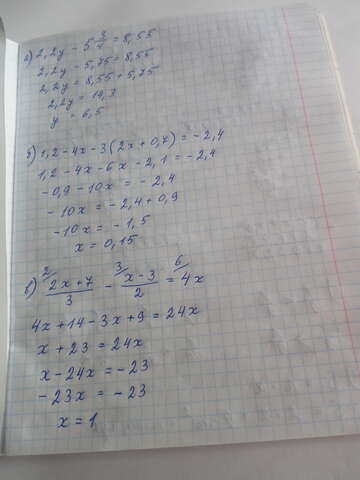 а) 2,2y - 5 3/4 = 8,55
2,2y - 5,75 = 8,55
2,2y = 8,55 + 5,75
2,2y = 14,3
y = 6,5
б) 1,2 - 4x - 3(2x + 0,7) = -2,4
1,2 - 4x - 6x - 2,1 = -2,4
-0,9 - 10x = -2,4
-10x = -2,4 + 0,9
-10x = -1,5
x = 0,15
в) 2/ (2x + 7)/3 - 3/ (x - 3)/2 = 6/ 4x
4x + 14 - 3x + 9 = 24x
x + 23 = 24x
x - 24x = -23
-23x = -23
x = 1